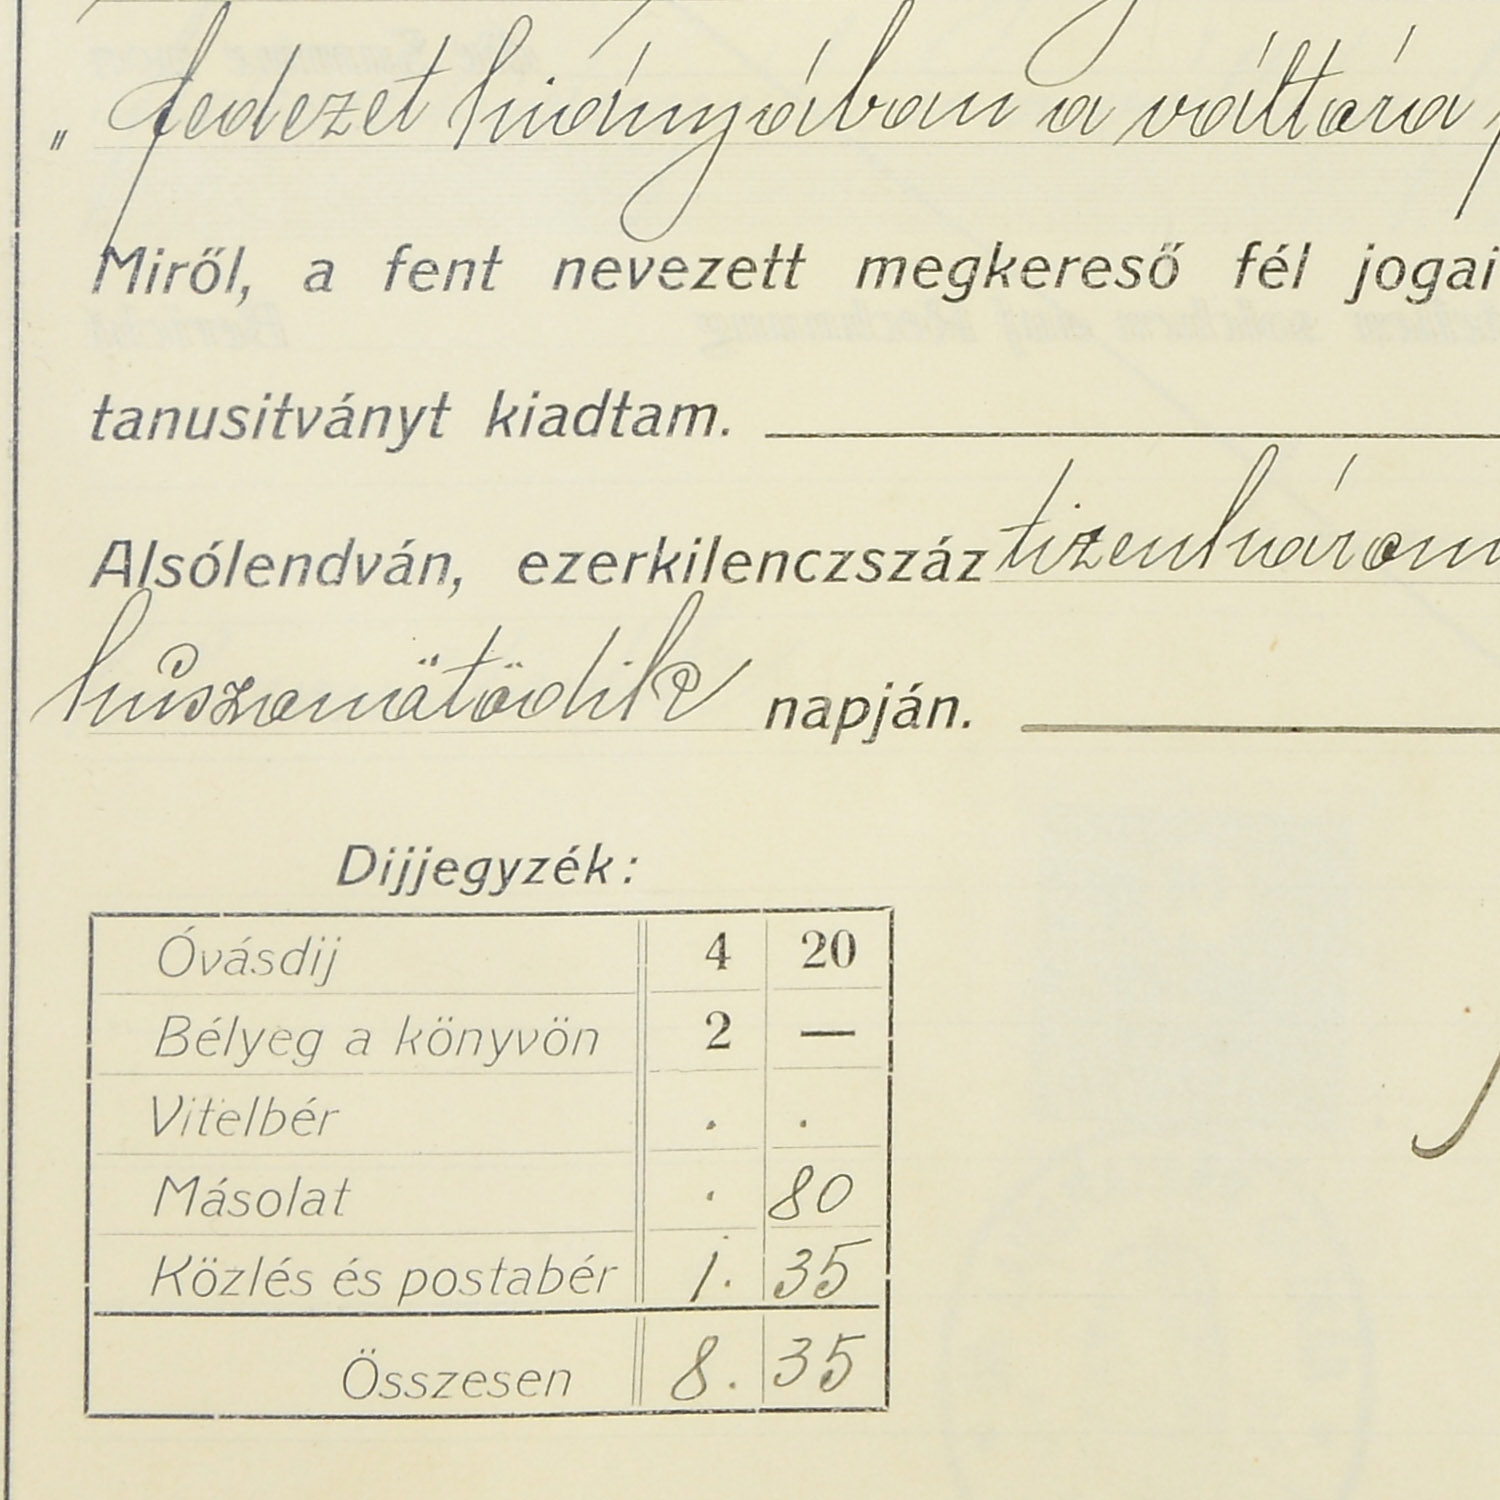 „ fedezet hiányában a váltóra
Miről, a fent nevezett megkereső fél jogai
tanusitványt kiadtam.
Alsólendván, ezerkilenczszáz tizenhárom
húszonötödik napján.
Dijjegyzék:
Óvásdij 4 20
Bélyeg a könyvön 2 —
Vitelbér . .
Másolat . 80
Közlés és postabér 1. 35
Összesen 8. 35